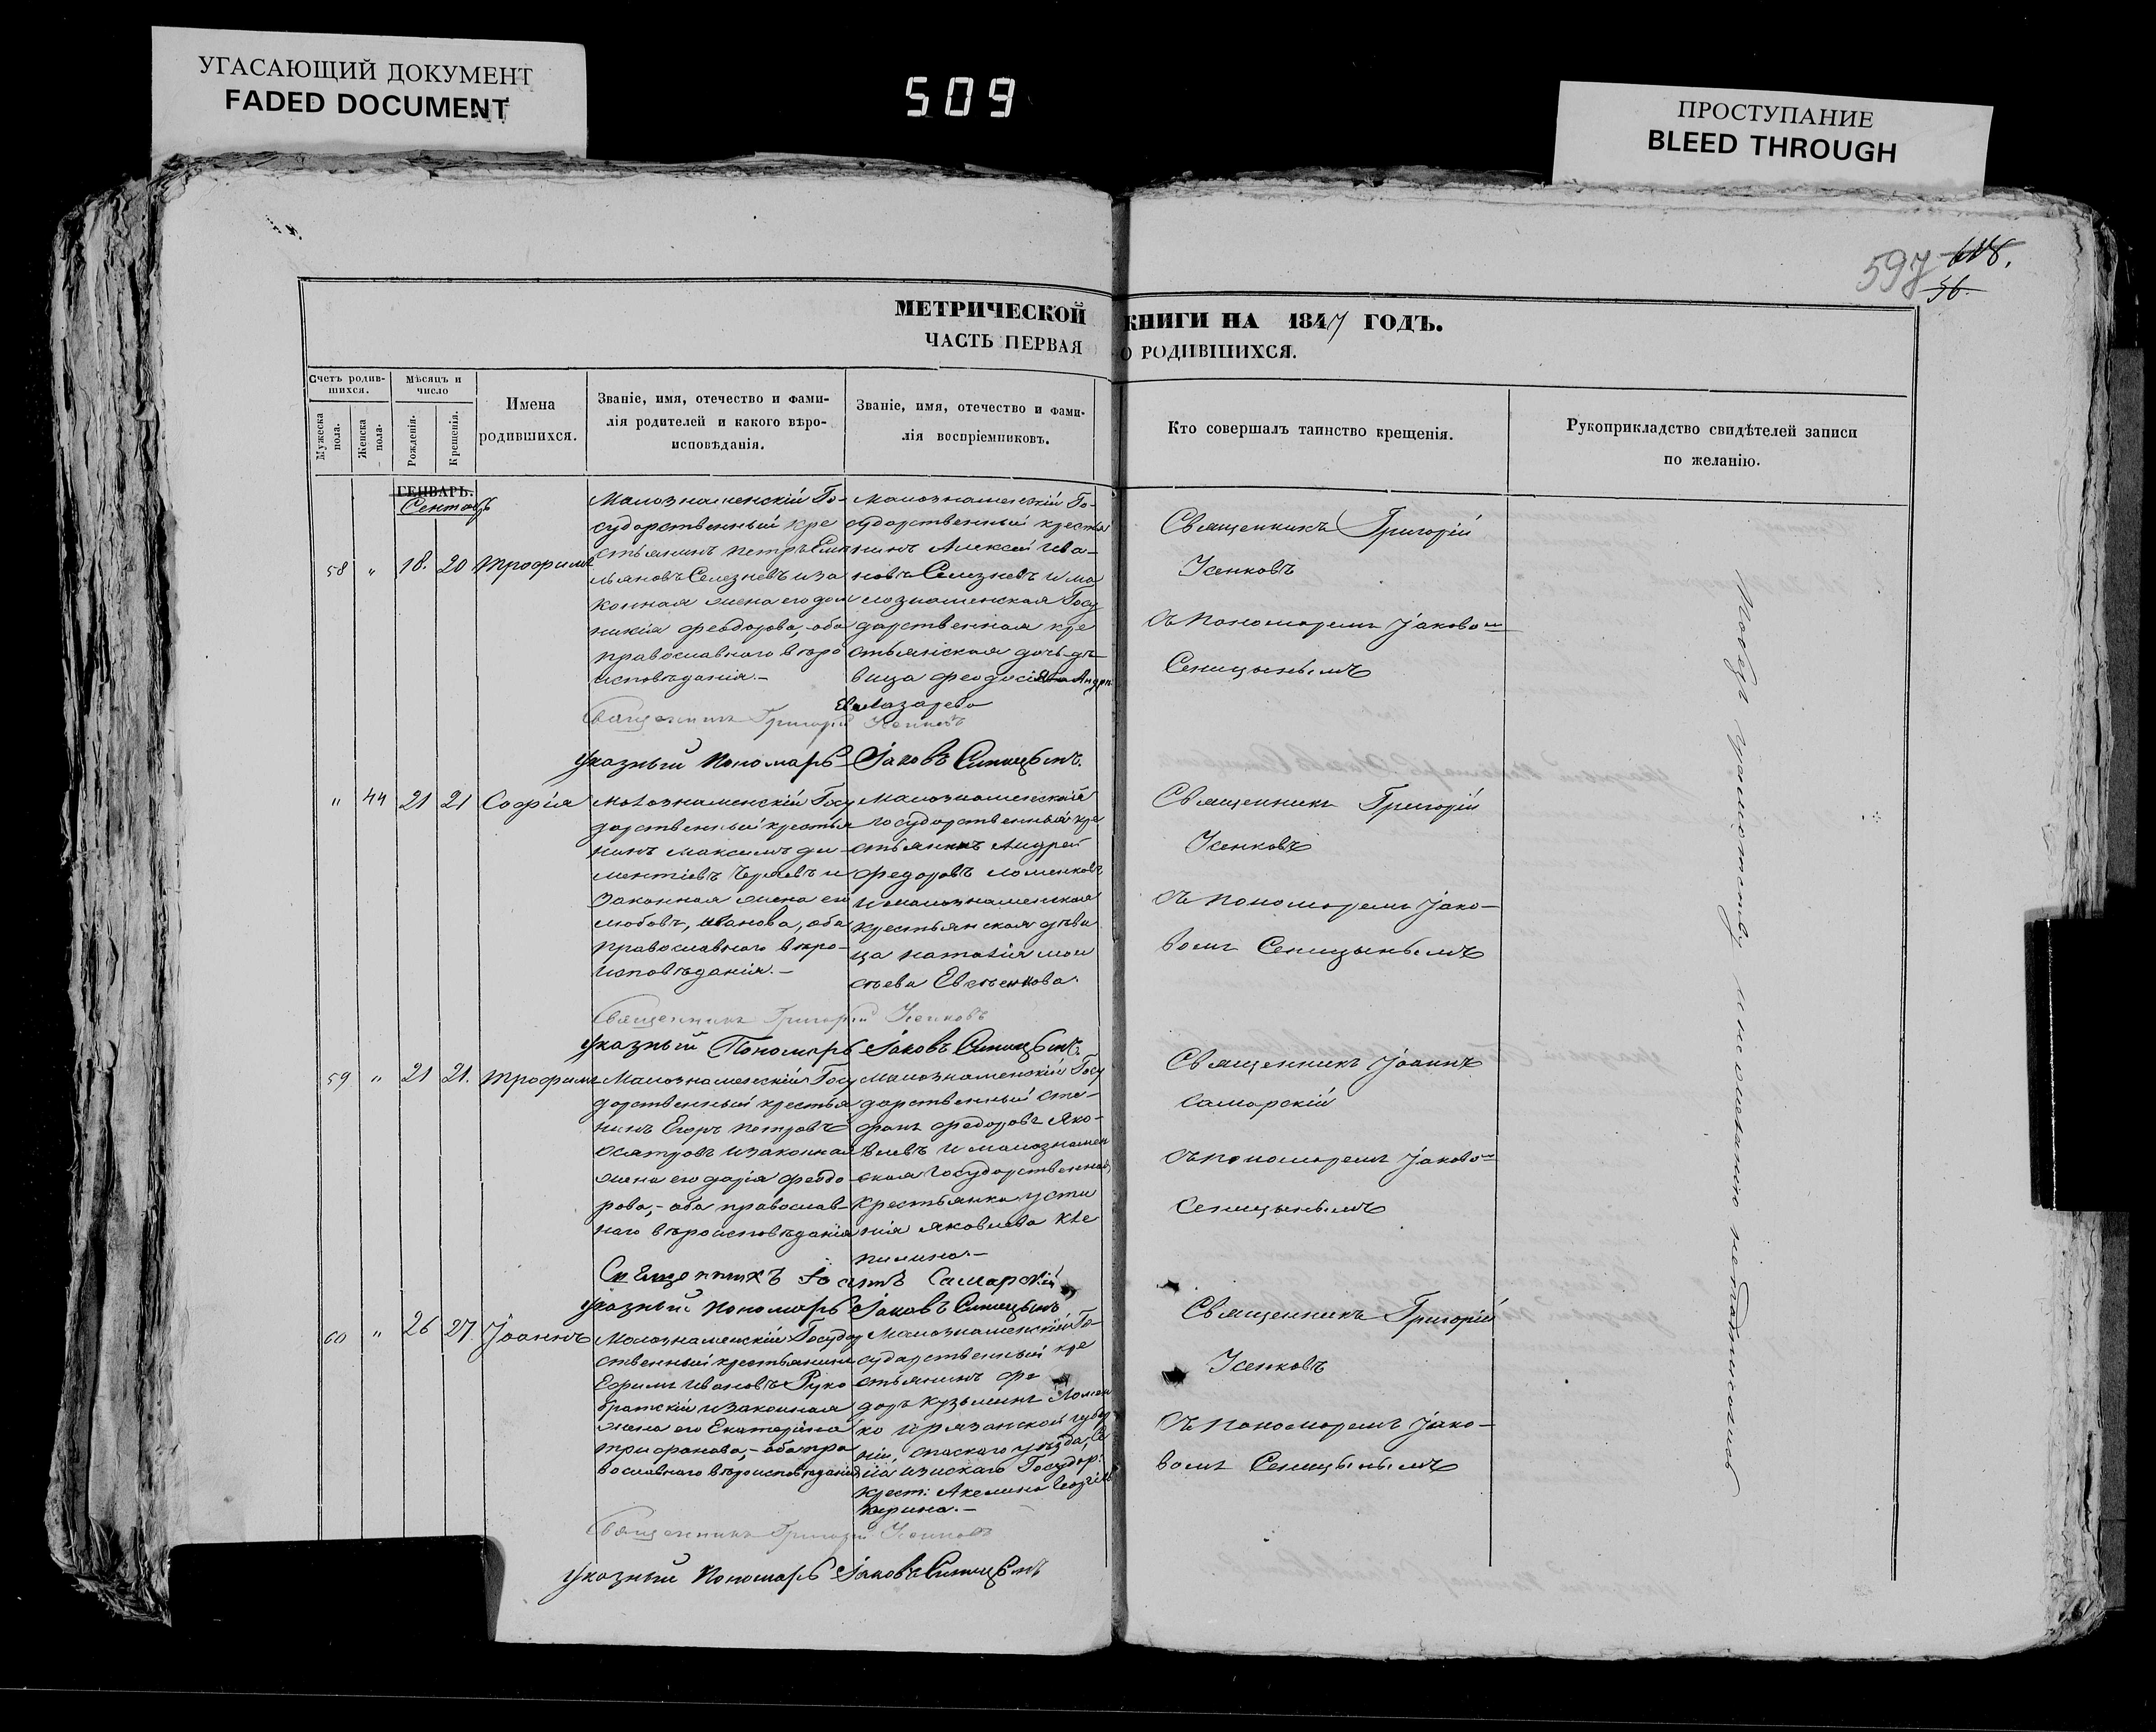 УГАСАЮЩИЙ ДОКУМЕНТ
FADED DOCUMENT
509
ПРОСТУПАНИЕ
BLEED THROUGH
597
56.
МЕТРИЧЕСКОЙ КНИГИ НА 1847 ГОДЪ.
ЧАСТЬ ПЕРВАЯ О РОДИВШИХСЯ.
Счетъ родив-
шихся.
Мужеска пола.
Женска пола.
Мѣсяцъ и
число
Рожденія.
Крещенія.
Имена
родившихся.
Званіе, имя, отечество и фами-
лія родителей и какого вѣро-
исповѣданія.
Званіе, имя, отечество и фами-
лія воспріемниковъ.
Кто совершалъ таинство крещенія.
Рукоприкладство свидѣтелей записи
по желанію.
ГЕНВАРЬ.
Сентябрь
58 " 18. 20 Трофимъ
Малознаменскій Го-
сударственный кре
стьянинъ Петръ Еми
льяновъ Селезневъ иза
конная жена его дом
никія Феодорова, оба
православнаго вѣро
исповѣданія.-
Малознаменскій Го-
сударственный крестья
нинъ Алексей Ива-
новъ Селезневъ и ма
лознаменская Госу
дарственная кре
стьянская дочь дѣ
вица Феодосія Андре
ева Лазарева
Священникъ Григорій
Усенковъ
Съ пономаремъ Іаковом
Сеницынымъ
Священникъ Григорій Усенковъ
Указный Пономарь Іаковъ Синицынъ.
" 44 21 21 Софія
Малознаменскій Госу
дарственный крестья
нинъ Максимъ Де-
ментіевъ и
Законная жена его
Любовъ, Иванова, оба
православнаго вѣро-
исповѣданія.-
Малознаменскій
Государственный кре
стьянинъ Андрей
Федоровъ Ломенковъ
и малознаменская
крестьянская дѣви
ца Наталія Мои
сѣева Евсѣенкова.
Священникъ Григорій
Усенковъ
Съ пономаремъ Іако-
вомъ Сеницынымъ
Священникъ Григорій Усенковъ
Указный Пономарь Іаковъ Синицынъ
59 " 21 21. Трофимъ
Малознаменскій Госу
дарственный крестья
нинъ Егоръ Петровъ
Осятровъ изаконная
жена его Дарія Феодо
рова,- оба православ-
наго вѣроисповѣданія
Малознаменскій Госу
дарственный Сте-
фанъ Федоровъ Яко-
влевъ и малознамен
ская Государственная
крестьянка Усти
нія Яковлева Кле
пилина.-
Священникъ Іоаннъ
Самарскій
Съ пономаремъ Іаковом
Сеницынымъ
Священникъ Іоаннъ Самарскій
Указный Пономарь Іаковъ Синицынъ
60 " 26 27. Іоаннъ
Малознаменскій Государ
ственный крестьянинъ
Ефимъ Ивановъ Руко
братскій изаконная
жена его Екатерина
Трифанова,- оба пра
вославнаго вѣроисповѣданія
Малознаменскій Го
сударственный кре
стьянинъ Фе
доръ Кузьминъ Ломен
ко и рязанской губер
ніи, Спаскаго уѣзда, Се
ла Ижискаго Государ:
крест: Акелина
Священникъ Григорій
Усенковъ
Съ пономаремъ Іако-
вомъ Сеницынымъ
Священникъ Григорій Усенковъ
Указный Пономарь Іаковъ Синицынъ